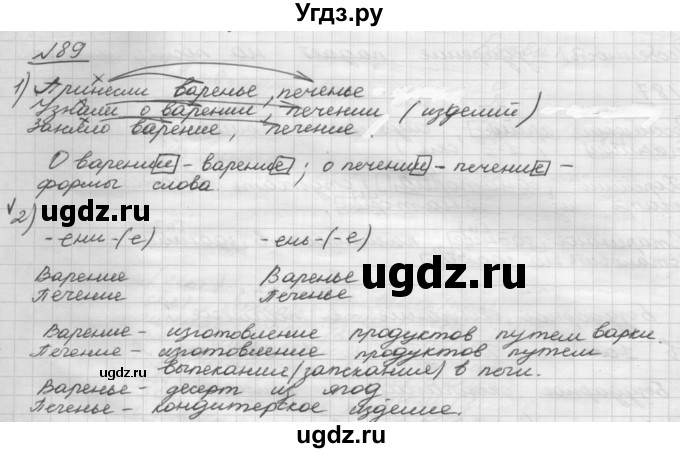 Угдз.ру
№89
1) Принесли варенье, печенье
Узнали о варении, печении (изделий)
Заняло варение, печение.
О варении - варение; о печении - печение -
формы слова
2)
-ени-(е) -ень-(-е)
Варение Варенье
Печение Печенье
Варение - изготовление продуктов путем варки.
Печение - изготовление продуктов путем
выпекания (запекания) в печи.
Варенье - десерт из ягод
Печенье - кондитерское изделие.
ugdz.ru
ugdz.ru
ugdz.ru
ugdz.ru
ugdz.ru